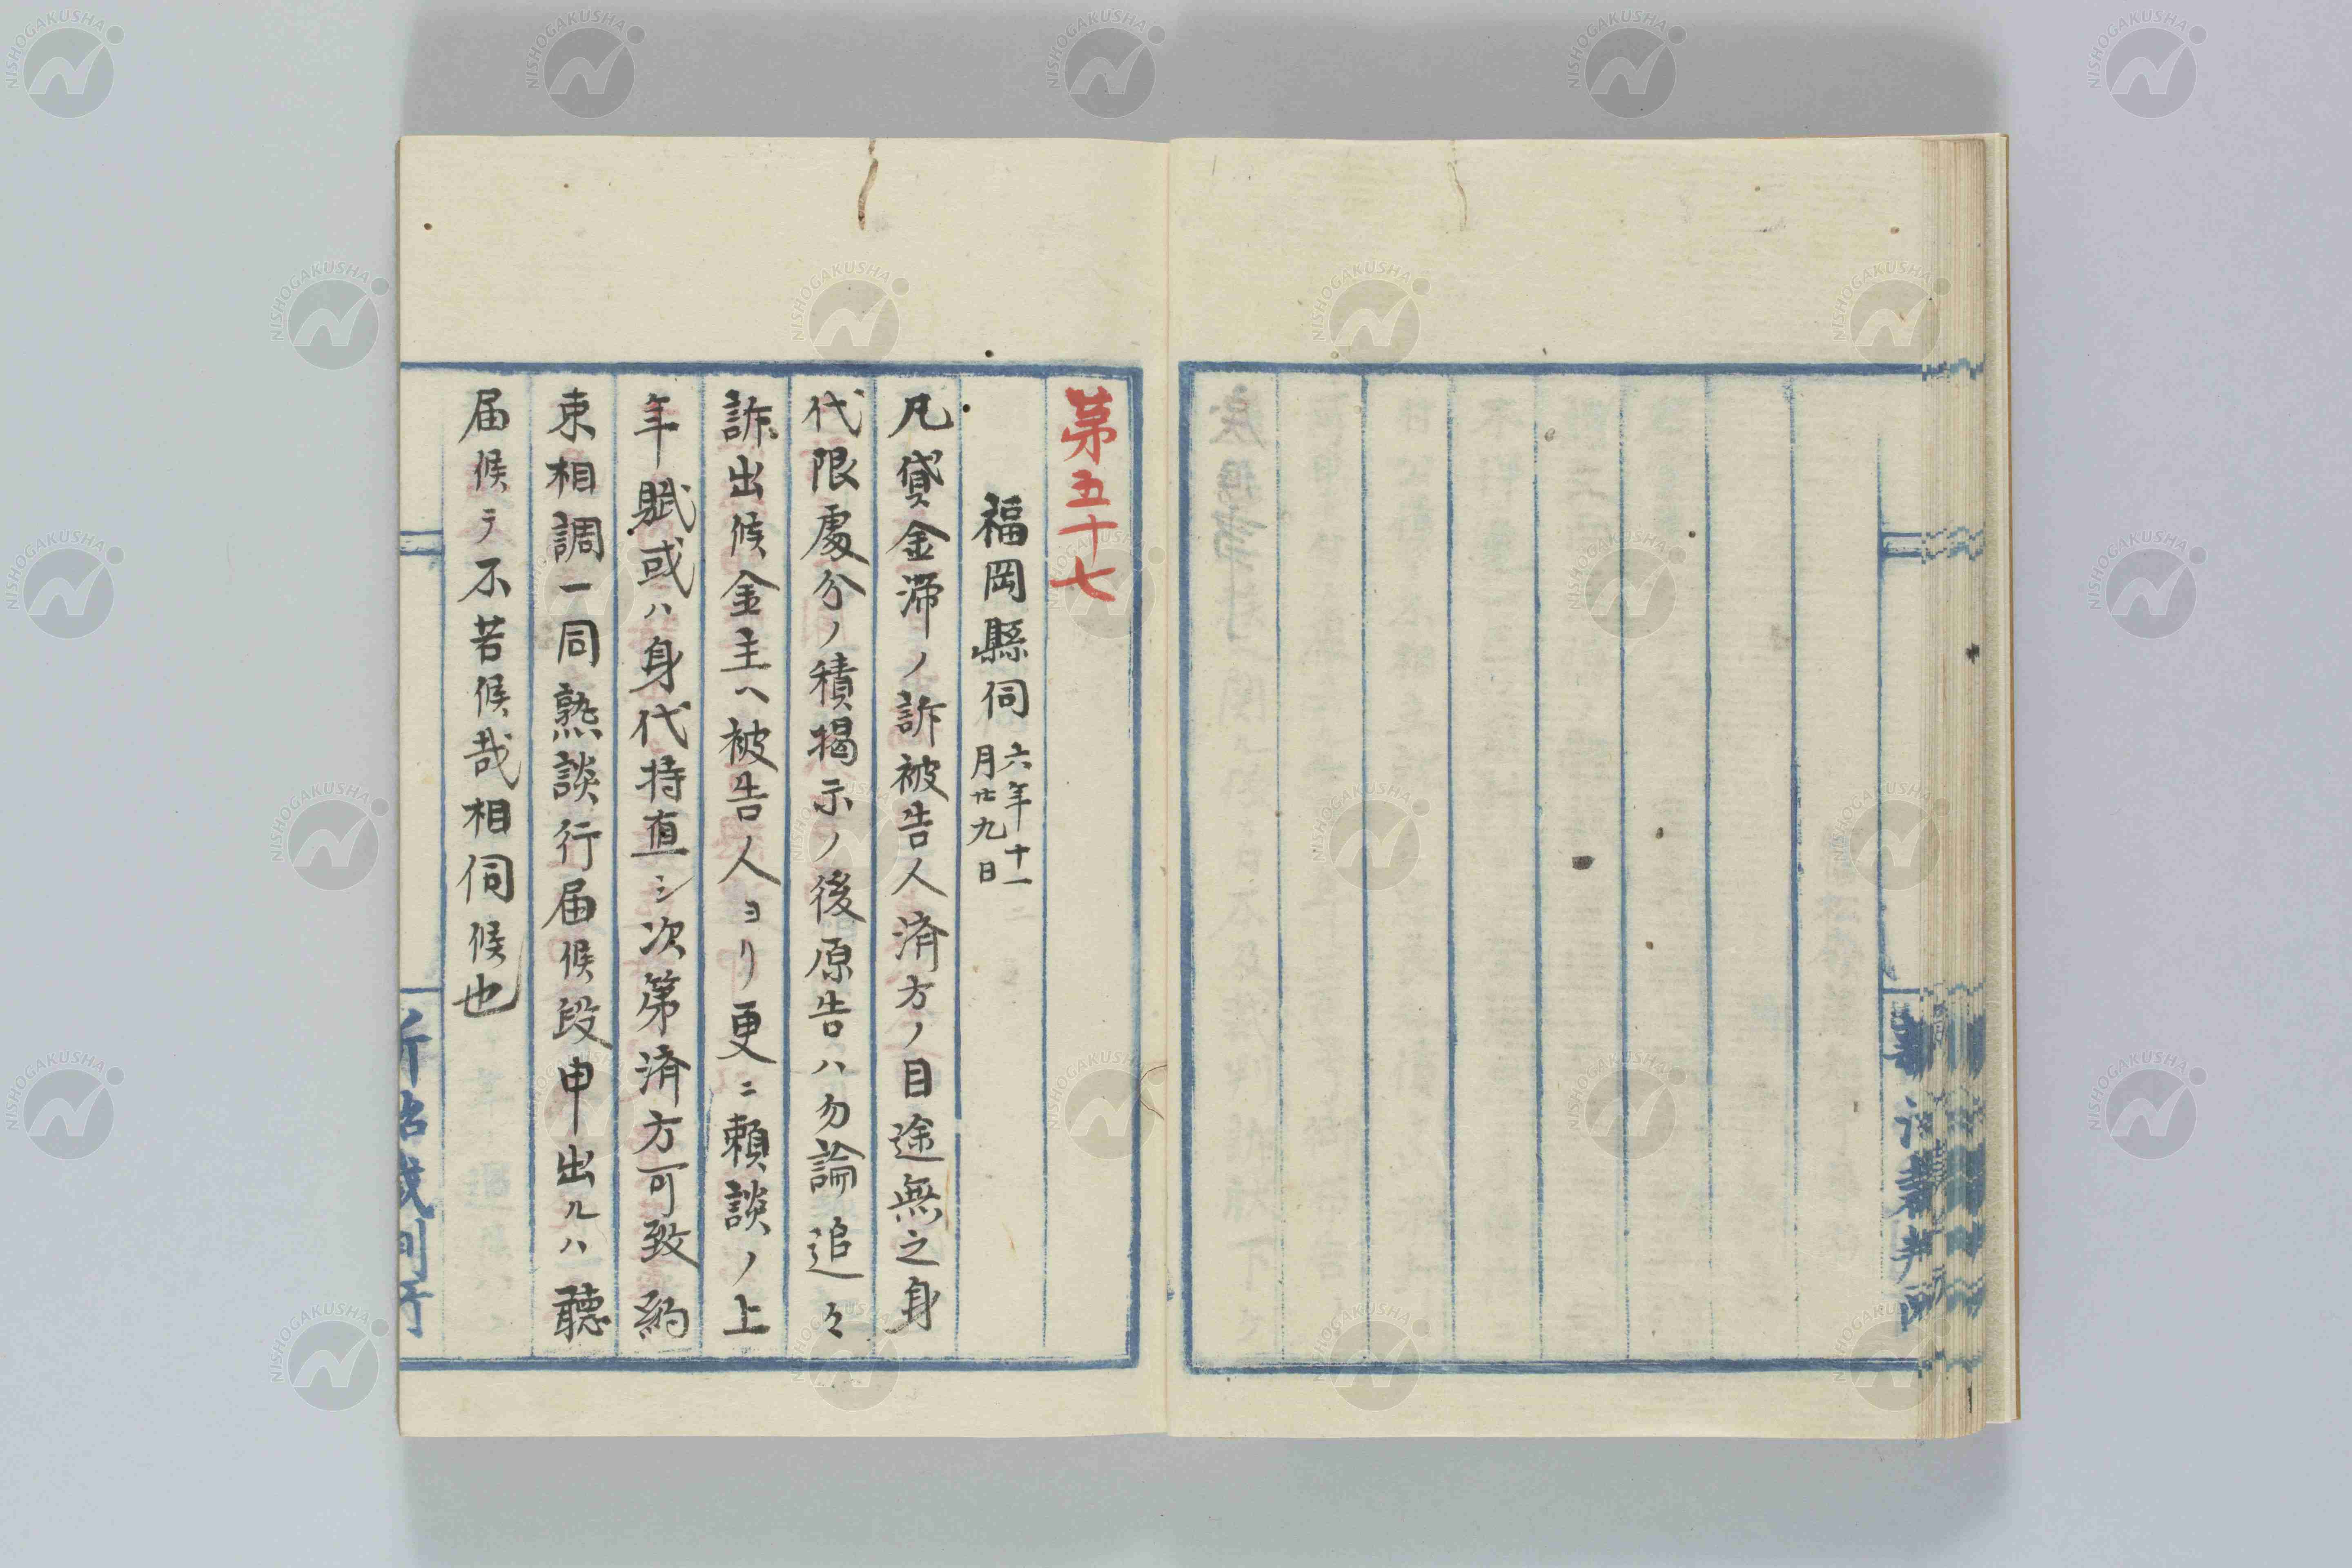 第五十七
福岡縣伺 六年十一月廿九日
凡貸金滞ノ訴被告人済方ノ目途無之身
代限處分ノ積掲示ノ後原告ハ勿論追々
訴出候金主ヘ被告人ヨリ更ニ頼談ノ上
年賦或ハ身代持直シ次第済方可致約
束相調一同熟談行届候段申出ルハ聽
届候テ不苦候哉相伺候也
NISHOGAKUSHA